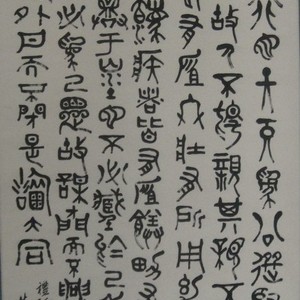 行也天下爲公選賢
故人不獨親其親不
老有所終壯有所用幼
疾者皆有所養男有
棄于地也不必藏於己
必爲己是故謀閉而不興
外戶而不閉是謂大同